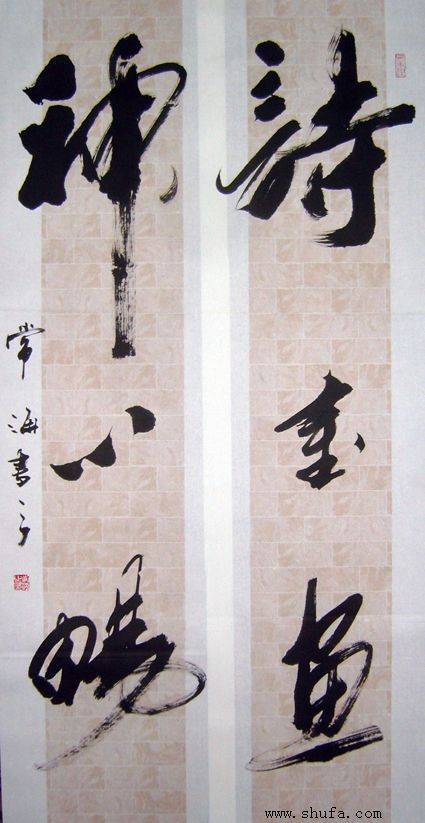 詩畫
神心暢
常海書
www.shufa.com